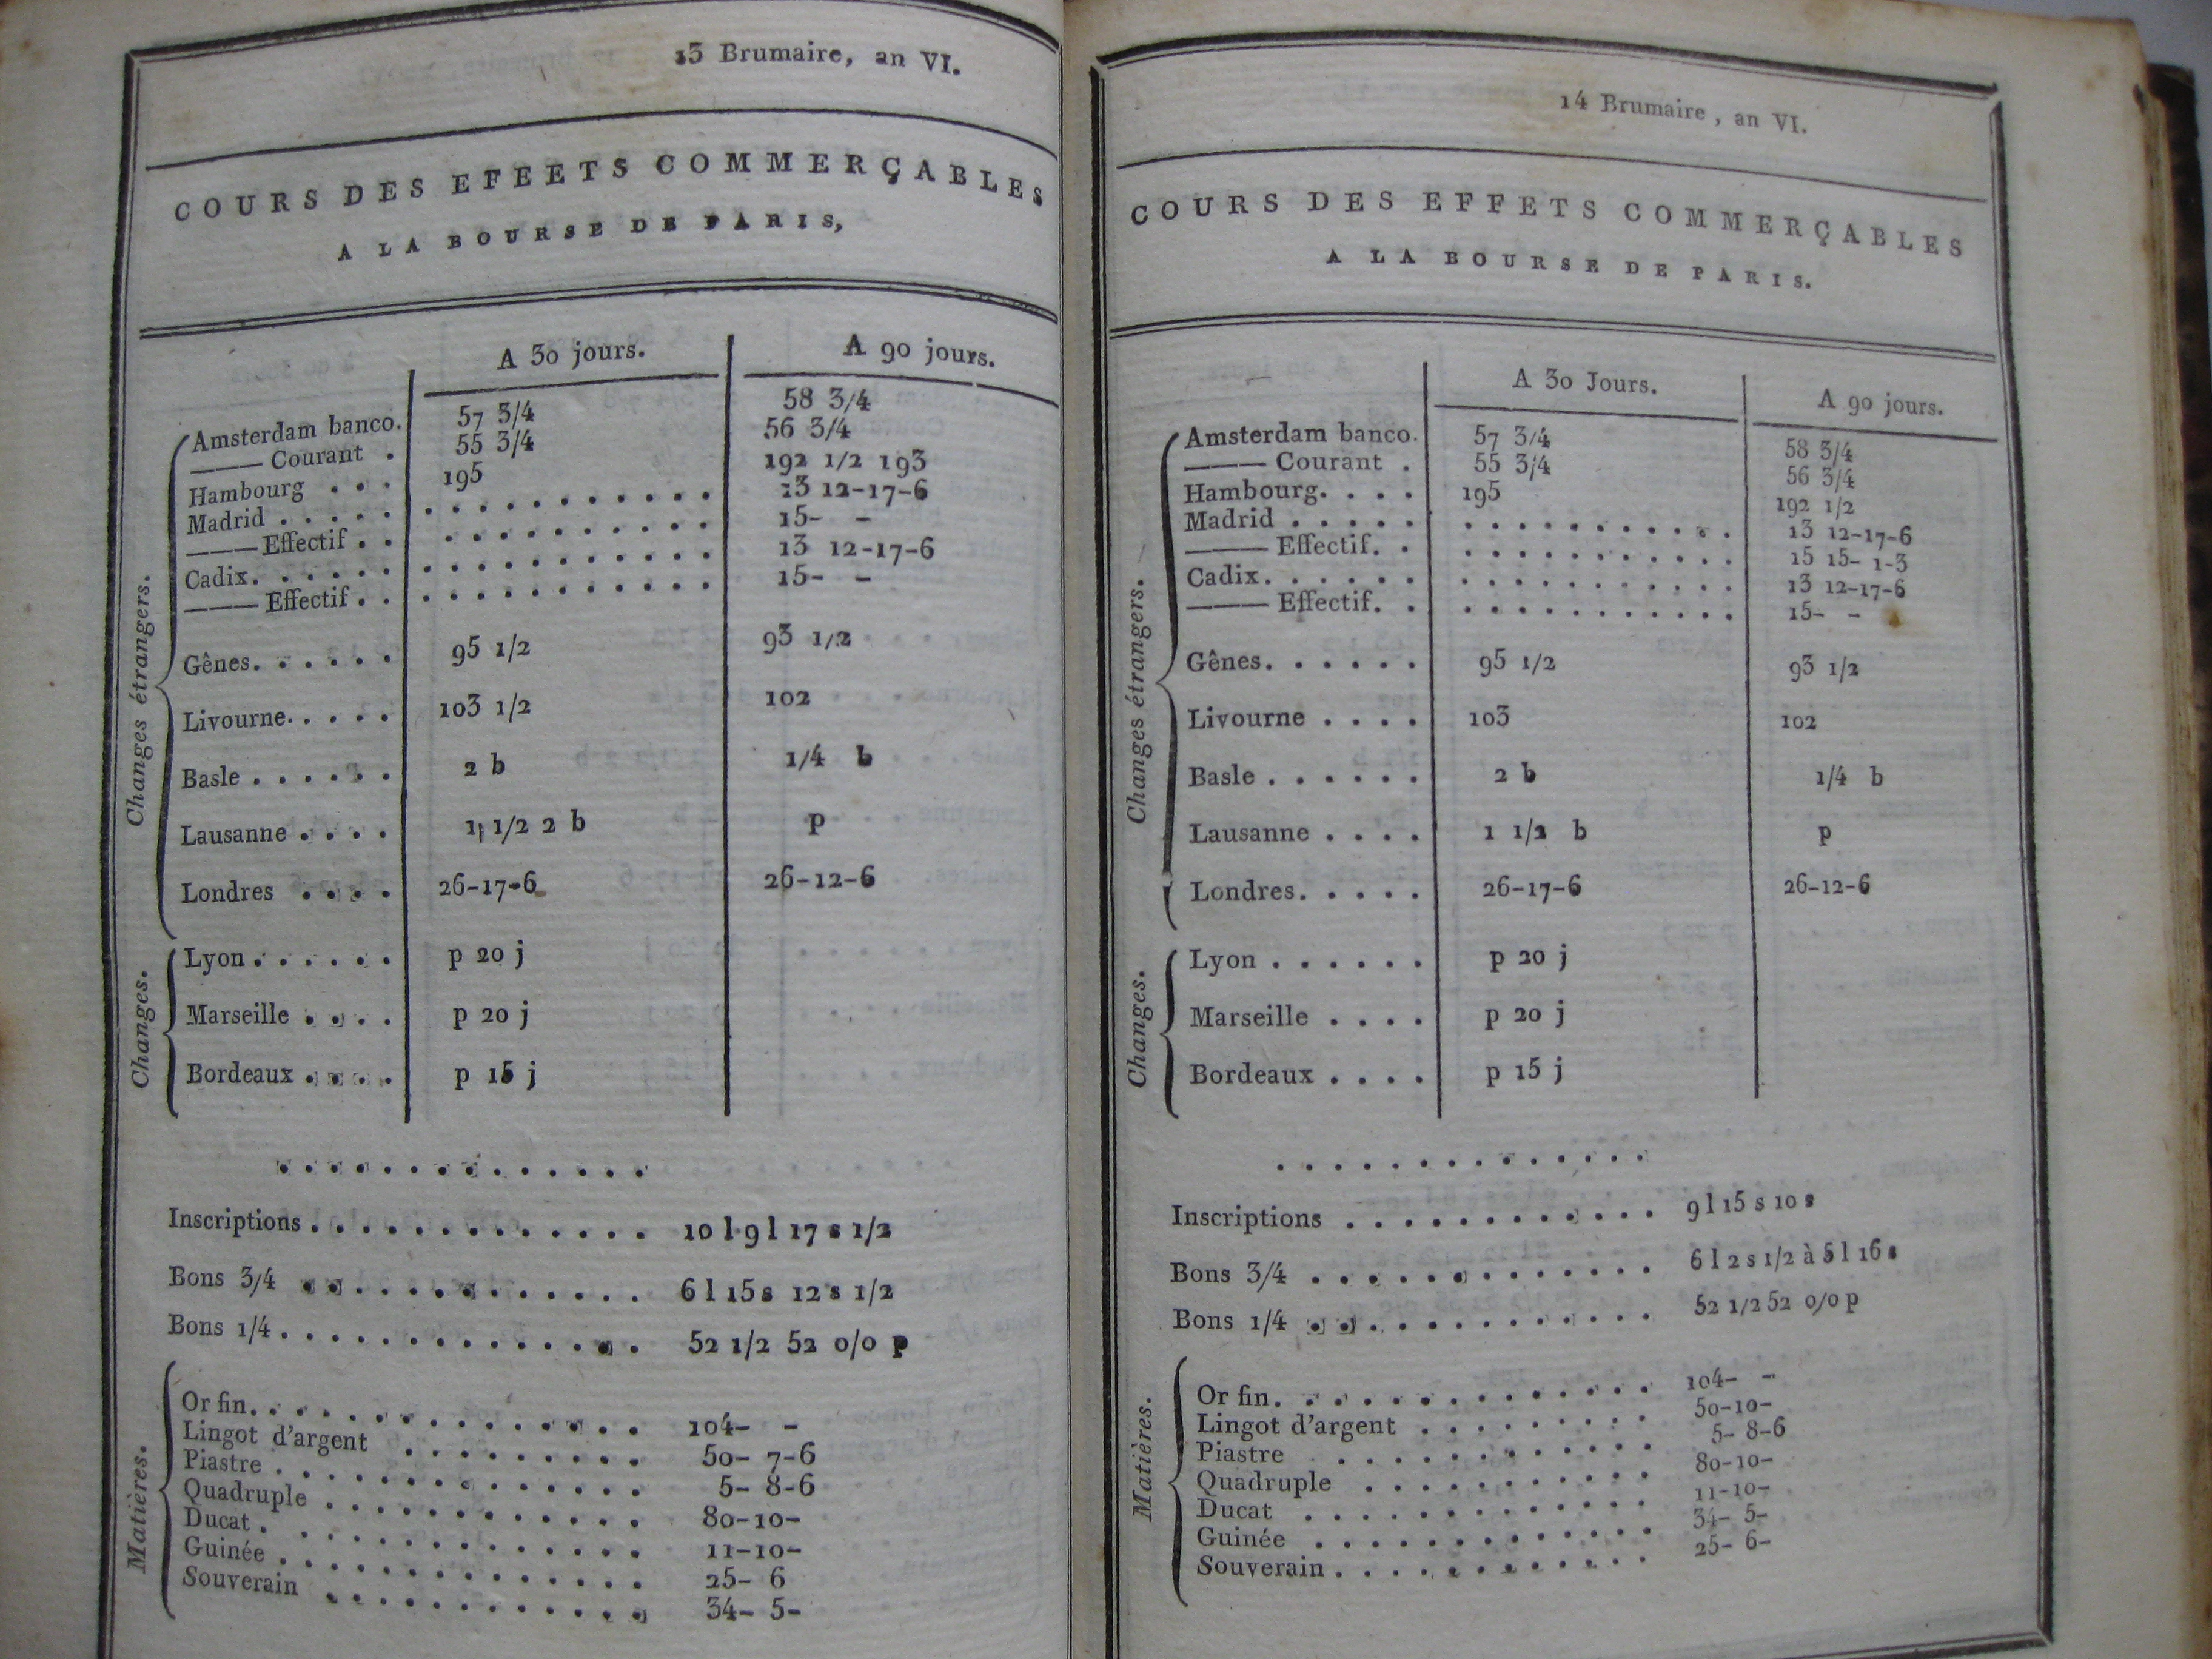 13 Brumaire, an VI.
COURS DES EFEETS COMMERÇABLES
A LA BOURSE DE PARIS,
A 30 jours. A 90 jours.
Changes étrangers.
Amsterdam banco. 57 3/4 58 3/4
——— Courant . 55 3/4 56 3/4
Hambourg . . . 195 192 1/2 193
Madrid . . . . . . . . . . . . . . . . 13 12-17-6
——— Effectif . . . . . . . . . . . . 15- -
Cadix. . . . . . . . . . . . . . . . . 13 12-17-6
——— Effectif . . . . . . . . . . . . . 15- -
Gênes. . . . . . 95 1/2 93 1/2
Livourne. . . . . 103 1/2 102
Basle . . . . . . 2 b 1/4 b
Lausanne . . . . 1 1/2 2 b p
Londres . . . . 26-17-6 26-12-6
Changes.
Lyon . . . . . . p 20 j
Marseille . . . . p 20 j
Bordeaux . . . . p 15 j
. . . . . . . . . . . . . .
Inscriptions . . . . . . . . . . . . . 10 l 9 l 17 s 1/2
Bons 3/4 . . . . . . . . . . . . . 6 l 15 s 12 s 1/2
Bons 1/4 . . . . . . . . . . . . . . 52 1/2 52 0/0 p
Matières.
Or fin. . . . . . . . . . . . . . . 104- -
Lingot d'argent . . . . . . . . . 50- 7-6
Piastre . . . . . . . . . . . . . . 5- 8-6
Quadruple . . . . . . . . . . . . 80-10-
Ducat . . . . . . . . . . . . . . 11-10-
Guinée . . . . . . . . . . . . . . 25- 6
Souverain . . . . . . . . . . . . 34- 5-
14 Brumaire, an VI.
COURS DES EFFETS COMMERÇABLES
A LA BOURSE DE PARIS.
A 30 Jours. A 90 jours.
Changes étrangers.
Amsterdam banco. 57 3/4 58 3/4
——— Courant . 55 3/4 56 3/4
Hambourg. . . . 195 192 1/2
Madrid . . . . . . . . . . . . . . . 13 12-17-6
——— Effectif. . . . . . . . . . . . 15 15- 1-3
Cadix. . . . . . . . . . . . . . . . 13 12-17-6
——— Effectif. . . . . . . . . . . . 15- -
Gênes. . . . . . 95 1/2 93 1/2
Livourne . . . . 103 102
Basle . . . . . . 2 b 1/4 b
Lausanne . . . . 1 1/2 b p
Londres. . . . . 26-17-6 26-12-6
Changes.
Lyon . . . . . . p 20 j
Marseille . . . . p 20 j
Bordeaux . . . . p 15 j
. . . . . . . . . . . . . .
Inscriptions . . . . . . . . . . . . 9 l 15 s 10 s
Bons 3/4 . . . . . . . . . . . . . 6 l 2 s 1/2 à 5 l 16 s
Bons 1/4 . . . . . . . . . . . . . 52 1/2 52 0/0 p
Matières.
Or fin. . . . . . . . . . . . . . . 104- -
Lingot d'argent . . . . . . . . . 50-10-
Piastre . . . . . . . . . . . . 5- 8-6
Quadruple . . . . . . . . . . . 80-10-
Ducat . . . . . . . . . . . . . 11-10-
Guinée . . . . . . . . . . . . . 34- 5-
Souverain . . . . . . . . . . . . 25- 6-